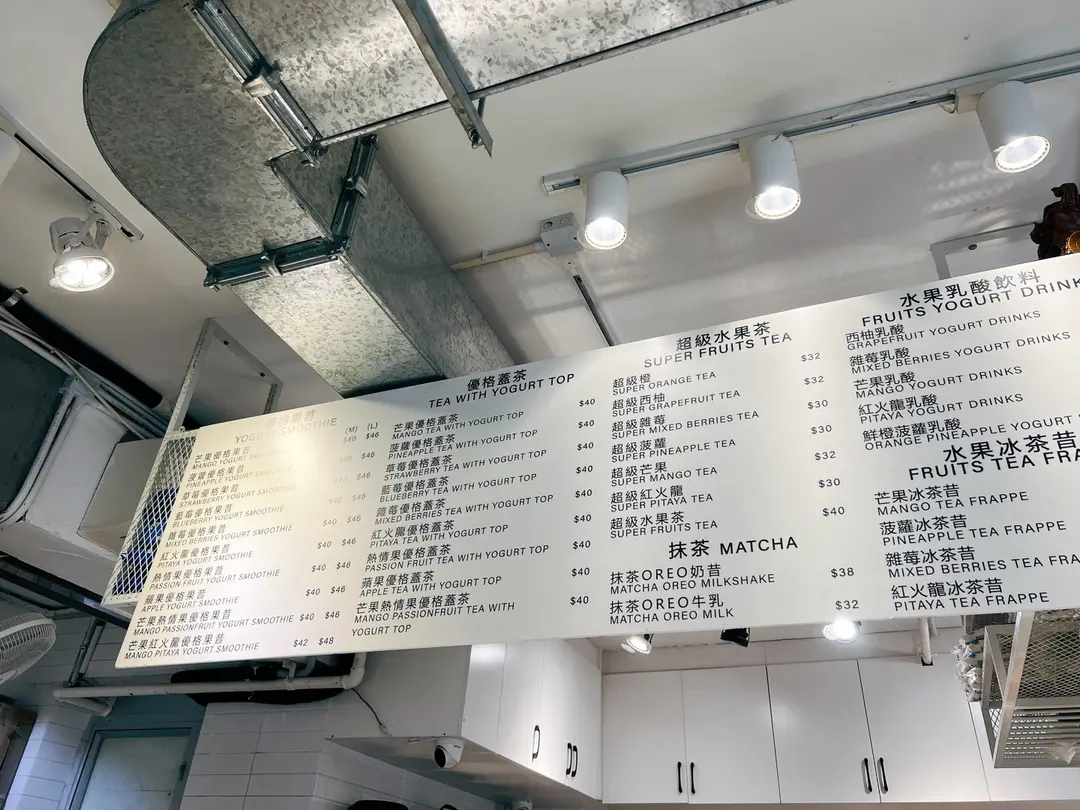 優格果昔
YOGURT SMOOTHIE
(M) (L)
芒果優格果昔 $40 $46
MANGO YOGURT SMOOTHIE
菠蘿優格果昔 $46
PINEAPPLE YOGURT SMOOTHIE
草莓優格果昔 $46
STRAWBERRY YOGURT SMOOTHIE
藍莓優格果昔 $40 $46
BLUEBERRY YOGURT SMOOTHIE
雜莓優格果昔 $40 $46
MIXED BERRIES YOGURT SMOOTHIE
紅火龍優格果昔 $40 $46
PITAYA YOGURT SMOOTHIE
熱情果優格果昔 $40 $46
PASSION FRUIT YOGURT SMOOTHIE
蘋果優格果昔 $40 $46
APPLE YOGURT SMOOTHIE
芒果熱情果優格果昔
MANGO PASSIONFRUIT YOGURT SMOOTHIE $40 $46
芒果紅火龍優格果昔
MANGO PITAYA YOGURT SMOOTHIE $42 $48
優格蓋茶
TEA WITH YOGURT TOP
芒果優格蓋茶 $40
MANGO TEA WITH YOGURT TOP
菠蘿優格蓋茶 $40
PINEAPPLE TEA WITH YOGURT TOP
草莓優格蓋茶 $40
STRAWBERRY TEA WITH YOGURT TOP
藍莓優格蓋茶 $40
BLUEBERRY TEA WITH YOGURT TOP
雜莓優格蓋茶 $40
MIXED BERRIES TEA WITH YOGURT TOP
紅火龍優格蓋茶 $40
PITAYA TEA WITH YOGURT TOP
熱情果優格蓋茶 $40
PASSION FRUIT TEA WITH YOGURT TOP
蘋果優格蓋茶 $40
APPLE TEA WITH YOGURT TOP
芒果熱情果優格蓋茶 $40
MANGO PASSIONFRUIT TEA WITH
YOGURT TOP
超級水果茶
SUPER FRUITS TEA
超級橙 $32
SUPER ORANGE TEA
超級西柚 $32
SUPER GRAPEFRUIT TEA
超級雜莓 $30
SUPER MIXED BERRIES TEA
超級菠蘿 $30
SUPER PINEAPPLE TEA
超級芒果 $32
SUPER MANGO TEA
超級紅火龍 $30
SUPER PITAYA TEA
超級水果茶 $40
SUPER FRUITS TEA
抹茶 MATCHA
抹茶OREO奶昔 $38
MATCHA OREO MILKSHAKE
抹茶OREO牛乳 $32
MATCHA OREO MILK
水果乳酸飲料
FRUITS YOGURT DRINK
西柚乳酸
GRAPEFRUIT YOGURT DRINKS
雜莓乳酸
MIXED BERRIES YOGURT DRINKS
芒果乳酸
MANGO YOGURT DRINKS
紅火龍乳酸
PITAYA YOGURT DRINKS
鮮橙菠蘿乳酸
ORANGE PINEAPPLE YOGURT
水果冰茶昔
FRUITS TEA FRA
芒果冰茶昔
MANGO TEA FRAPPE
菠蘿冰茶昔
PINEAPPLE TEA FRAPPE
雜莓冰茶昔
MIXED BERRIES TEA FRA
紅火龍冰茶昔
PITAYA TEA FRAPPE